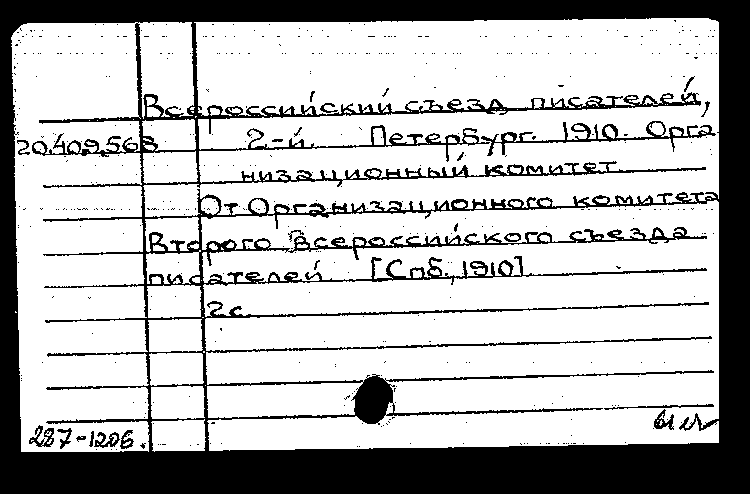 Всероссийский съезд писателей,
20.409.568 2-й. Петербург. 1910. Орга
низационный комитет.
От Организационного комитета
Второго Всероссийского съезда
писателей [Спб., 1910]
2с.
287-1206.